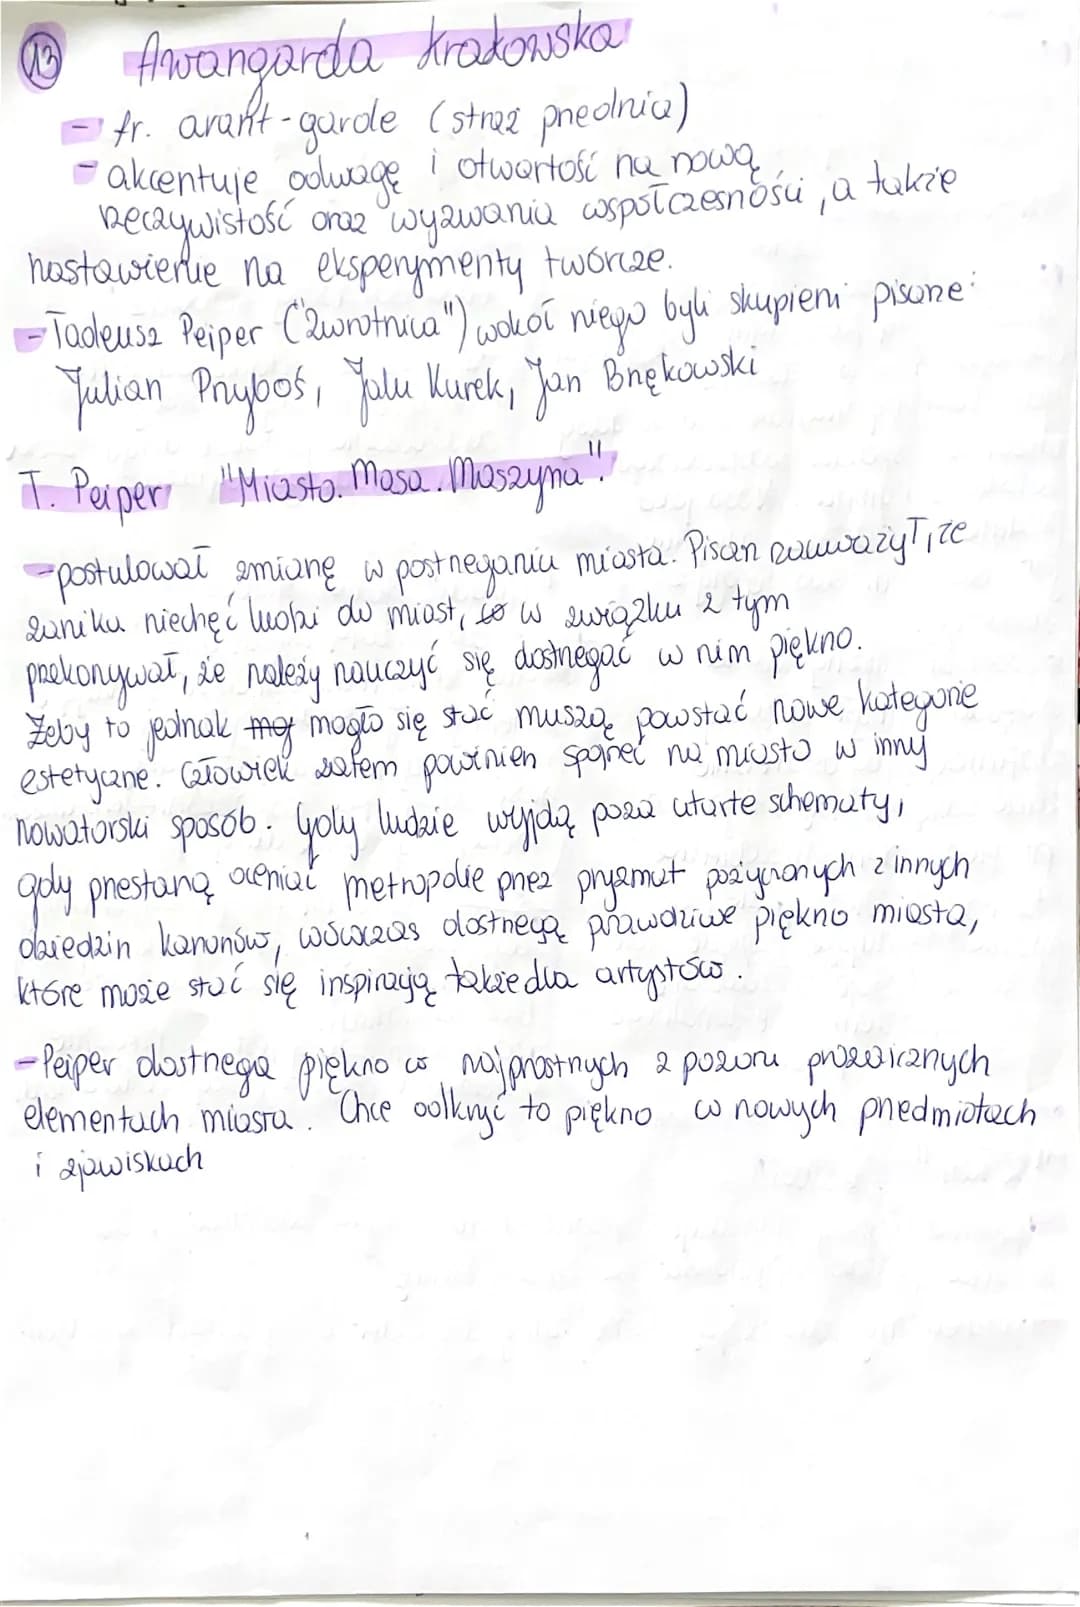 13 Awangarda Krakowska
- fr. avant-garde (straż przednia)
- akcentuje odwagę i otwartość na nową
rzeczywistość oraz wyzwania współczesności, a także
nastawienie na eksperymenty twórcze.
- Tadeusz Peiper ("Zwrotnica") wokół niego byli skupieni pisarze:
Julian Przyboś, Jalu Kurek, Jan Brzękowski
T. Peiper "Miasto. Masa. Maszyna".
- postulował zmianę w postrzeganiu miasta. Pisarz zauważył, że
zaniku niechęć ludzi do miast, to w związku z tym
przekonywał, że należy nauczyć się dostrzegać w nim piękno.
Żeby to jednak mog mogło się stać muszą powstać nowe kategorie
estetyczne. Człowiek zatem powinien spojrzeć na miasto w inny
nowatorski sposób. Gdy ludzie wyjdą poza utarte schematy,
gdy przestaną oceniać metropolie przez pryzmat pożyczonych z innych
dziedzin kanonów, wówczas dostrzegą prawdziwe piękno miasta,
które może stać się inspiracją także dla artystów.
- Peiper dostrzega piękno w najprostrzych z pozoru prozaicznych
elementach miasta. Chce odkryć to piękno w nowych przedmiotach
i zjawiskach